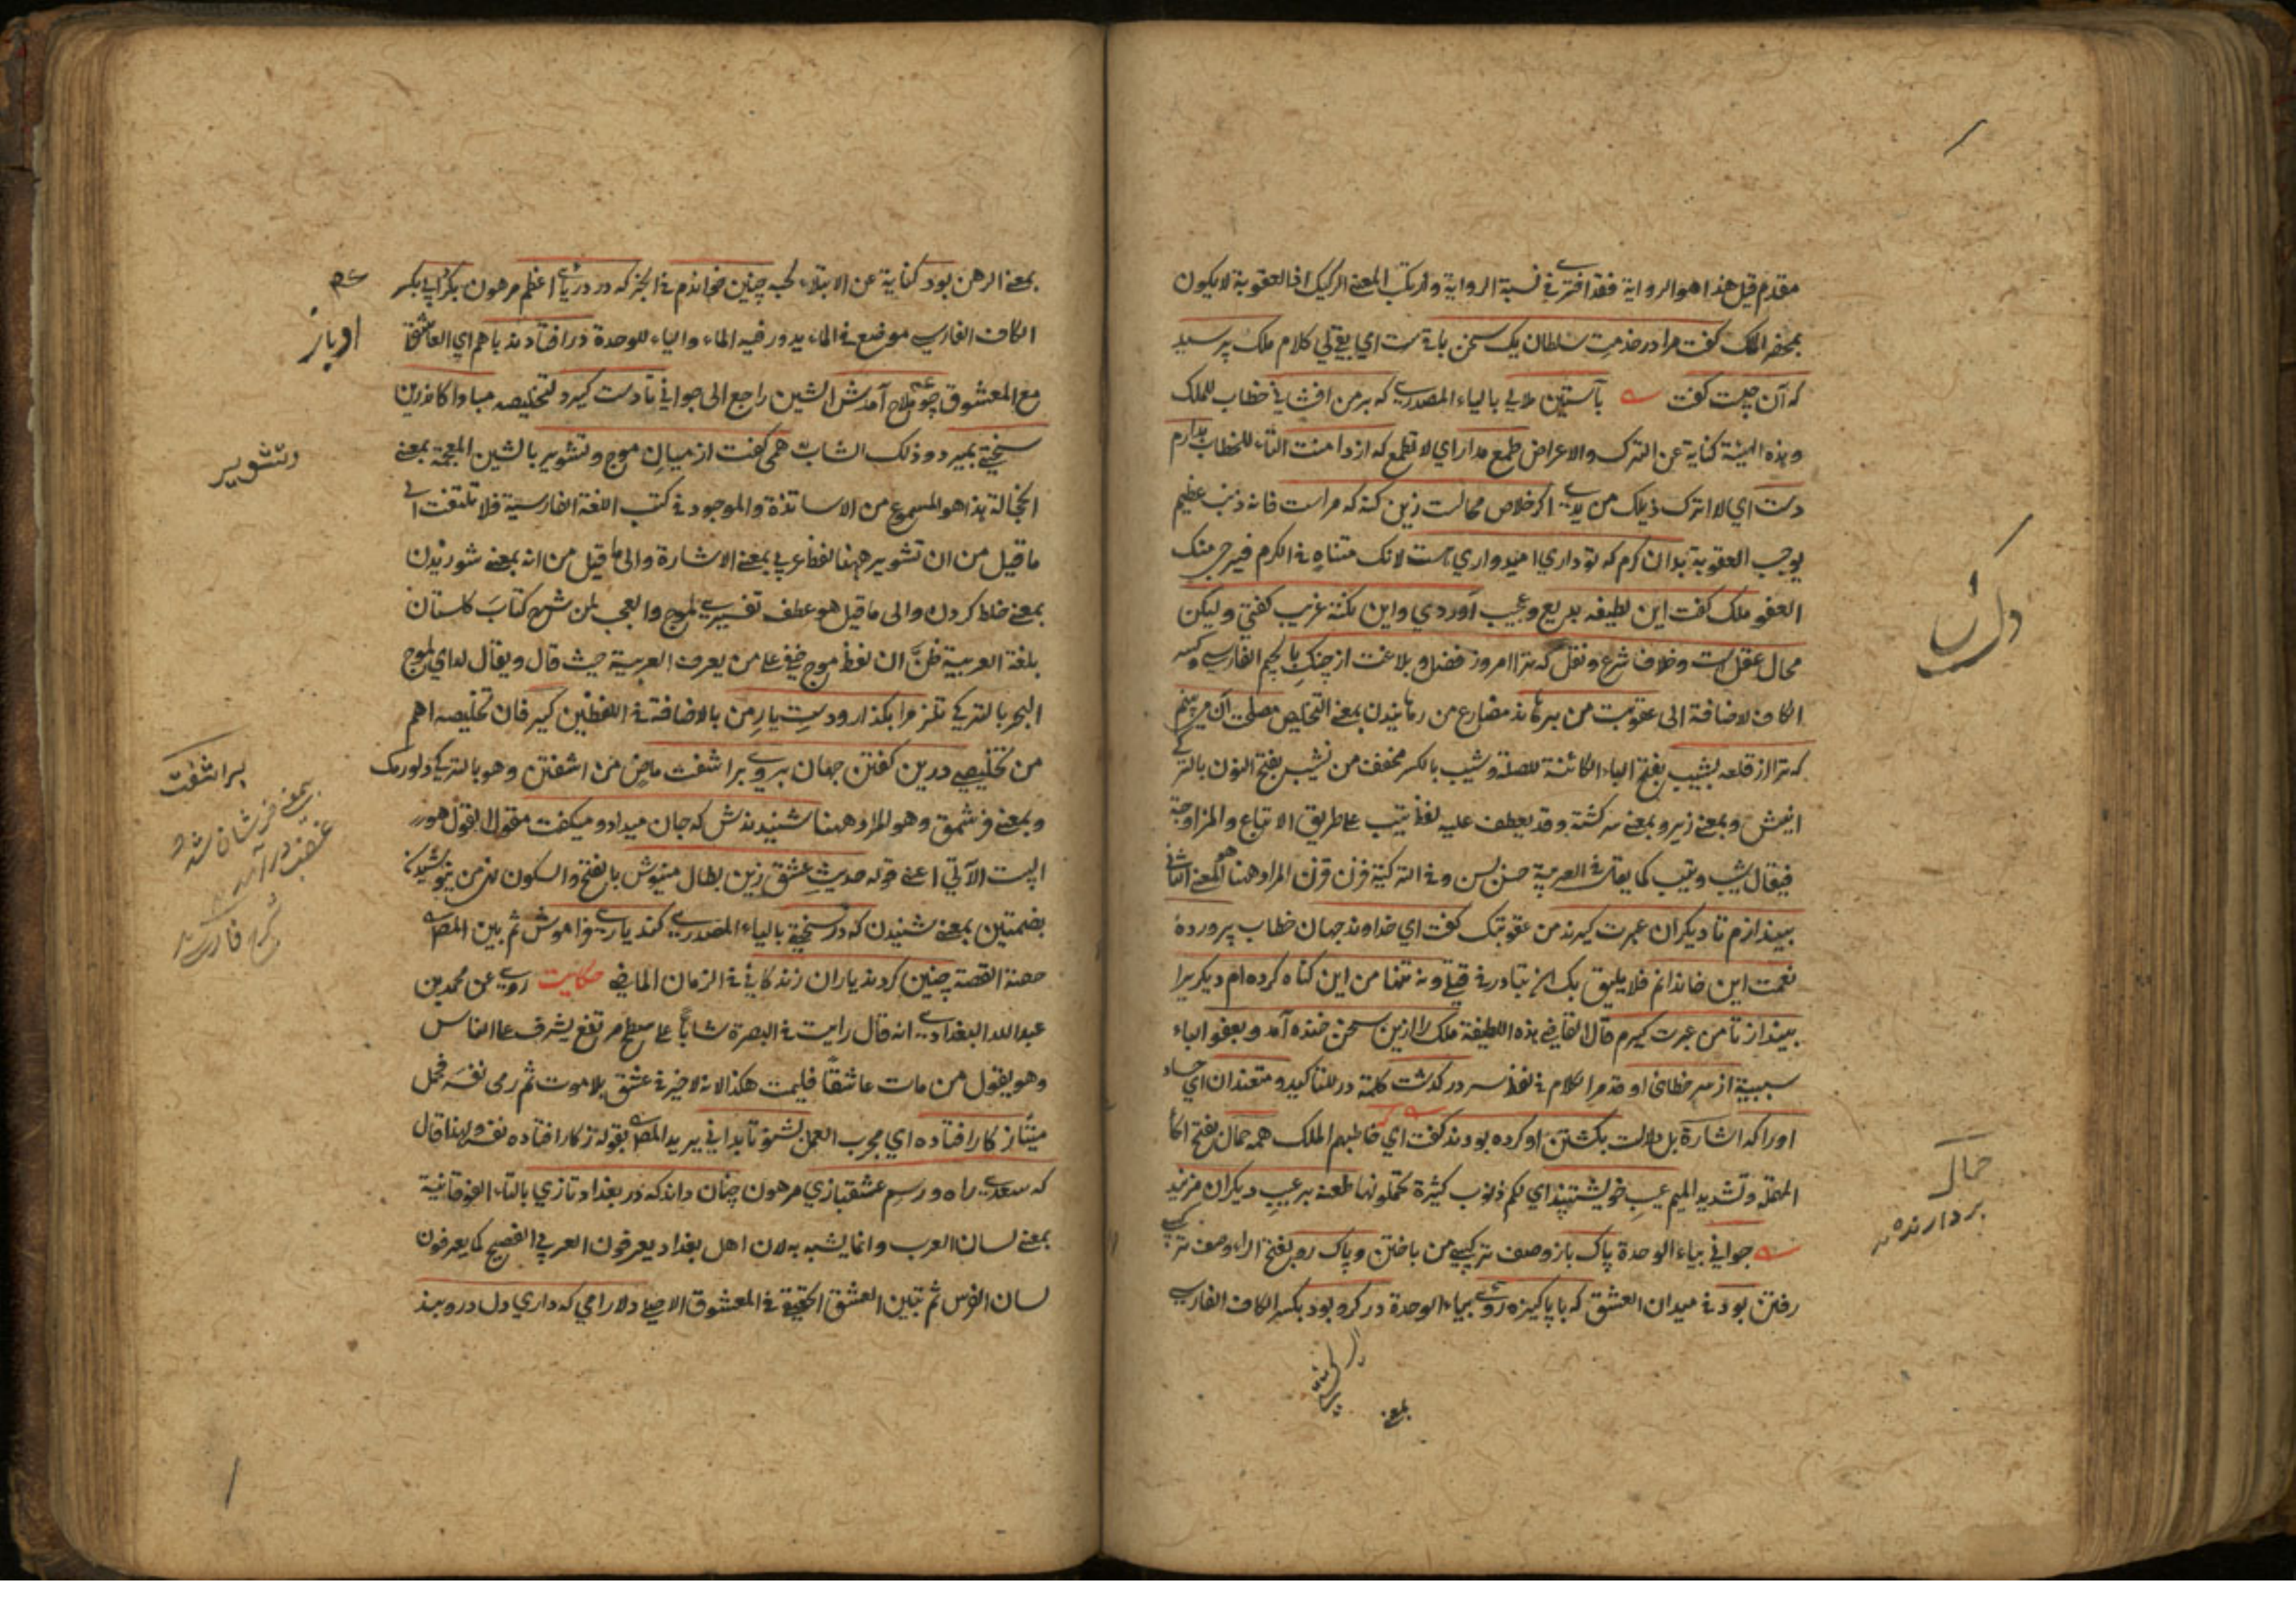 مقدم قيل هذا هو الرواية فقد افترى في نسبة الرواية وارتكب المعنى الركيك اذ العقوبة لا يكون
بمحضر الملك كفت مرا در خدمت سلطان يك سخن باقيست اي بقي لي كلام ملك پرسيد
كه آن چيست كفت بآستين ملالي بالياء المصدري كه بر من افشاني خطاب للملك
وهذه الهيئة كناية عن الترك والاعراض طمع مدار اي لا تطمع كه از دامنت التاء للخطاب بدارم
دست اي لا اترك ذيلك من يدي اكر خلاص محالست زين كنه كه مراست فانه ذنب عظيم
يوجب العقوبة بدان كرم كه تو داري اميدواري هست لانك متناه في الكرم فيرجى منك
العفو ملك كفت اين لطيفه بديع وعجيب آوردي واين نكته غريب كفتي وليكن
محال عقلست وخلاف شرع ونقل كه ترا امروز فضل وبلاغت از چنك بالجيم الفارسي وكسر
الكاف لاضافة الى عقوبت من برهاند مضارع من رهانيدن بمعنى التخليص مصلحت آن مى بينم
كه ترا از قلعه بشيب بفتح الباء الكائنة للصلة وشيب بالكسر مخفف من نشيب بفتح النون بالتركي
اينش وبمعنى زير وبمعنى سركشته وقد يعطف عليه لفظ تيب على طريق الاتباع والمزاوجة
فيقال شيب وتيب كما يقال في العربية حسن بسن وفي التركية قزن قزن المراد ههنا هو المعنى الثاني
بيندازم تا ديكران عبرت كيرند من عقوبتك كفت اي خداوند جهان خطاب پرورده
نعمت اين خاندانم فلا يليق بك ان تبادر في قتلي ونه تنها من اين كناه كرده ام ديكريرا
بينداز تا من عبرت كيرم قال القاضي هذه اللطيفة ملك را ازين سخن خنده آمد وبعفو الباء
سببية از سر خطاى او قد مر الكلام في لفظ سر دركذشت كلمة در للتأكيد ومتعندان اي حساد
اورا كه اشارة بل دلالت بكشتن او كرده بودند كفت اي خاطبهم الملك همه حمال بفتح الحاء
المهملة وتشديد الميم عيب خويشتنيد اي لكم ذنوب كثيرة تحملونها طعنه بر عيب ديكران مزنيد
جواني بياء الوحدة پاك باز وصف تركيبي من باختن وپاك رو بفتح الراء وصف تركيبي
رفتن بود في ميدان العشق كه با پاكيزه روئي بياء الوحدة در كرو بود بكسر الكاف الفارسي
بمعنى
دان
حمال
بردارنده
بمعنى الرهن بود كناية عن الابتلاء لحبه چنين خواندم في الخبر كه در درياي اعظم مرهون بكردابي بكسر
الكاف الفارسي موضع في الماء يدور فيه الماء والياء للوحدة درافتادند باهم اي العاشق
مع المعشوق چو ملاح آمدش الشين راجع الى جواني تا دست كيرد لتخليصه مبادا كاندران
سختي بميرد وذلك الشاب همى كفت از ميان موج وتشوير بالشين المعجمة بمعنى
الخجالة هذا هو المسموع من الاساتذة والموجود في كتب اللغة الفارسية فلا تلتفت الى
ما قيل من ان تشوير ههنا لفظ عربي بمعنى الاشارة والى ما قيل من انه بمعنى شوريدن
بمعنى خلط كردن والى ما قيل هو عطف تفسيري لموج والعجب لمن شرح كتاب كلستان
بلغة العربية ظن ان لفظ موج خفي على من يعرف العربية حيث قال ويقال لداي لموج
البحر بالتركي تلز مرا بكذار ودست يار من بالاضافة في اللفظين كير فان تخليصه اهم
من تخليصي درين كفتن جهان بروي براشفت ماض من اشفتن وهو بالتركي دلورمك
وبمعنى قزشمق وهو المراد ههنا شنيدندش كه جان ميداد وميكفت مقول القول هو
البيت الآتي اعني قوله حديث عشق زين بطال منيوش بالفتح والسكون نهي من نيوشيدن
بضمتين بمعنى شنيدن كه در سختي بالياء المصدري كند ياري فراموش ثم بين المص
حصة القصة چنين كردند ياران زندكاني في الزمان الماضي حكايت روي عن محمد بن
عبد الله البغدادي انه قال رايت في البصرة شابا على سطح مرتفع يشرف على الناس
وهو يقول من مات عاشقا فليمت هكذا لانه لا خير في عشق بلا موت ثم رمى نفسه فحمل
ميتا ز كار افتاده اي مجرب العمل بشنو تا بداني يريد المص بقوله ز كار افتاده نفسه ولهذا قال
كه سعدي راه ورسم عشقبازي مرهون چنان داند كه در بغداد تازي بالتاء الفوقانية
بمعنى لسان العرب وانما يشبه به لان اهل بغداد يعرفون العربي الفصيح كما يعرفون
لسان الفرس ثم تبين العشق الحقيقي في المعشوق الاصلي دلارامي كه داري دل درو بند
وتشوير
براشفت